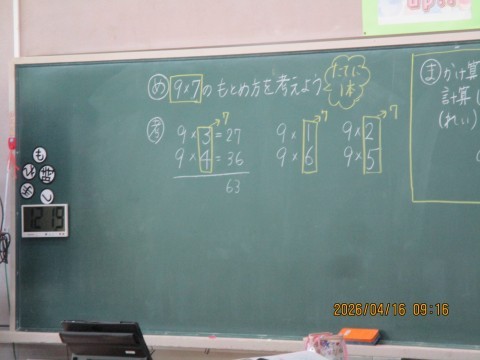 め 9×7のもとめ方を考えよう
たてに
1本
考
9×3=27
9×4=36
63
7
9×1
9×6
7
9×2
9×5
7
ま かけ算
計算し
(れい)
も
めし
12:15
2026/04/16 09:16